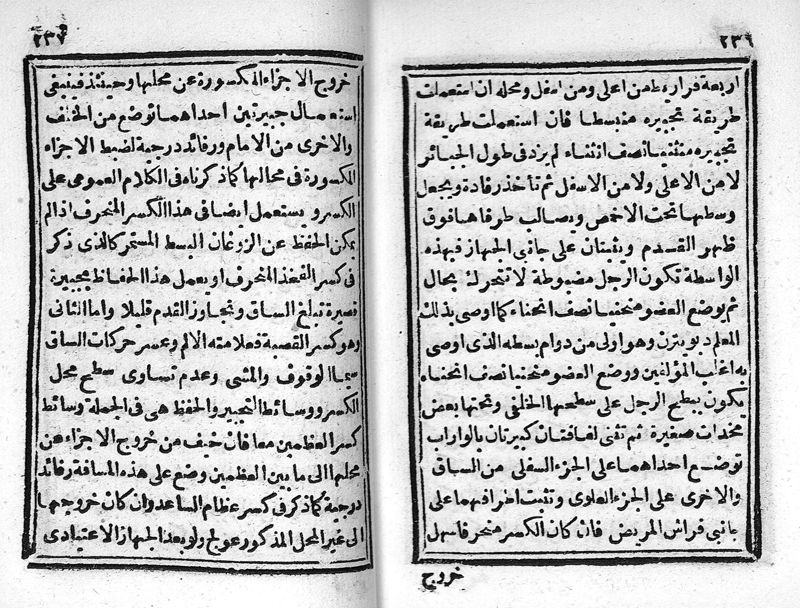 ٢٣٦
اربعة قراريط من اعلى ومن اسفل ومحله ان استعملت
طريقة تجبيره منبسطا فان استعملت طريقة
تجبيره منثنيا نصف انثناء لم يزد فى طول الجبائر
لا من الاعلى ولا من الاسفل ثم تأخذ رفادة ويجعل
وسطها تحت الاخمص ويصالب طرفاها فوق
ظهر القدم ويثبتان على جانبى الجهاز فبهذه
الواسطة تكون الرجل مضبوطة لا تتحرك بحال
ثم يوضع العضو منحنيا نصف انحناء كما اوصى بذلك
المعلم دوبوترن وهو اولى من دوام بسطه الذى اوصى
به اغلب المؤلفين ووضع العضو منحنيا نصف انحناء
يكون ببطح الرجل على سطحها الخلفى وتحتها بعض
مخدات صغيرة ثم تثنى لفافتان كبيرتان بالواراب
توضع احداهما على الجزء السفلى من الساق
والاخرى على الجزء العلوى وتثبت اطرافهما على
جانبى فراش المريض فان كان الكسر منحرفا سهل
خروج
٢٣٧
خروج الاجزاء المكسورة عن محلها وحينئذ فينبغى
استعمال جبيرتين احداهما توضع من الخلف
والاخرى من الامام ورفائد درجية لضبط الاجزاء
المكسورة فى محالها كما ذكرناه فى الكلام العمومى على
الكسر ويستعمل ايضا فى هذا الكسر المنحرف اذا لم
يمكن الحفظ عن الزوغان البسط المستمر كالذى ذكر
فى كسر الفخذ المنحرف او يعمل هذا الحفاظ بجبيرة
قصيرة تبلغ الساق وتجاوز القدم قليلا واما الثانى
وهو كسر القصبة فعلامته الالم وعسر حركات الساق
سيما الوقوف والمشى وعدم تساوى سطح محل
الكسر ووسائط التجبير والحفظ هى فى الجملة وسائط
كسر العظمين معا فان خيف من خروج الاجزاء عن
محلها الى ما بين العظمين وضع على هذه المسافة رفائد
درجية كما ذكر فى كسر عظام الساعد وان كان خروجها
الى غير المحل المذكور عولج ولو بعد الجهاز الاعتيادى